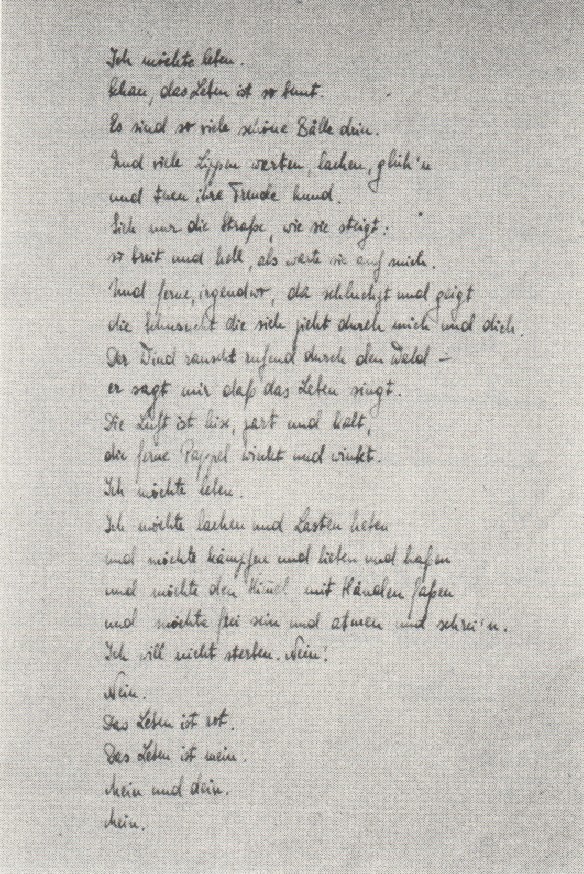 Ich möchte leben.
Schau, das Leben ist so bunt.
Es sind so viele schöne Bälle drin.
Und viele Lippen warten, lachen, glüh'n
und tuen ihre Freude kund.
Sieh nur die Straße, wie sie steigt:
so breit und hell, als warte sie auf mich.
Und ferne, irgendwo, da schluchzt und geigt
die Sehnsucht die sich zieht durch mich und dich.
Der Wind rauscht rufend durch den Wald –
er sagt mir daß das Leben singt.
Die Luft ist leise, zart und kalt,
die ferne Pappel winkt und winkt.
Ich möchte leben.
Ich möchte lachen und Lasten heben
und möchte kämpfen und lieben und haßen
und möchte den Himmel mit Händen faßen
und möchte frei sein und atmen und schrei'n.
Ich will nicht sterben. Nein!
Nein.
Das Leben ist rot.
Das Leben ist mein.
Mein und dein.
Mein.